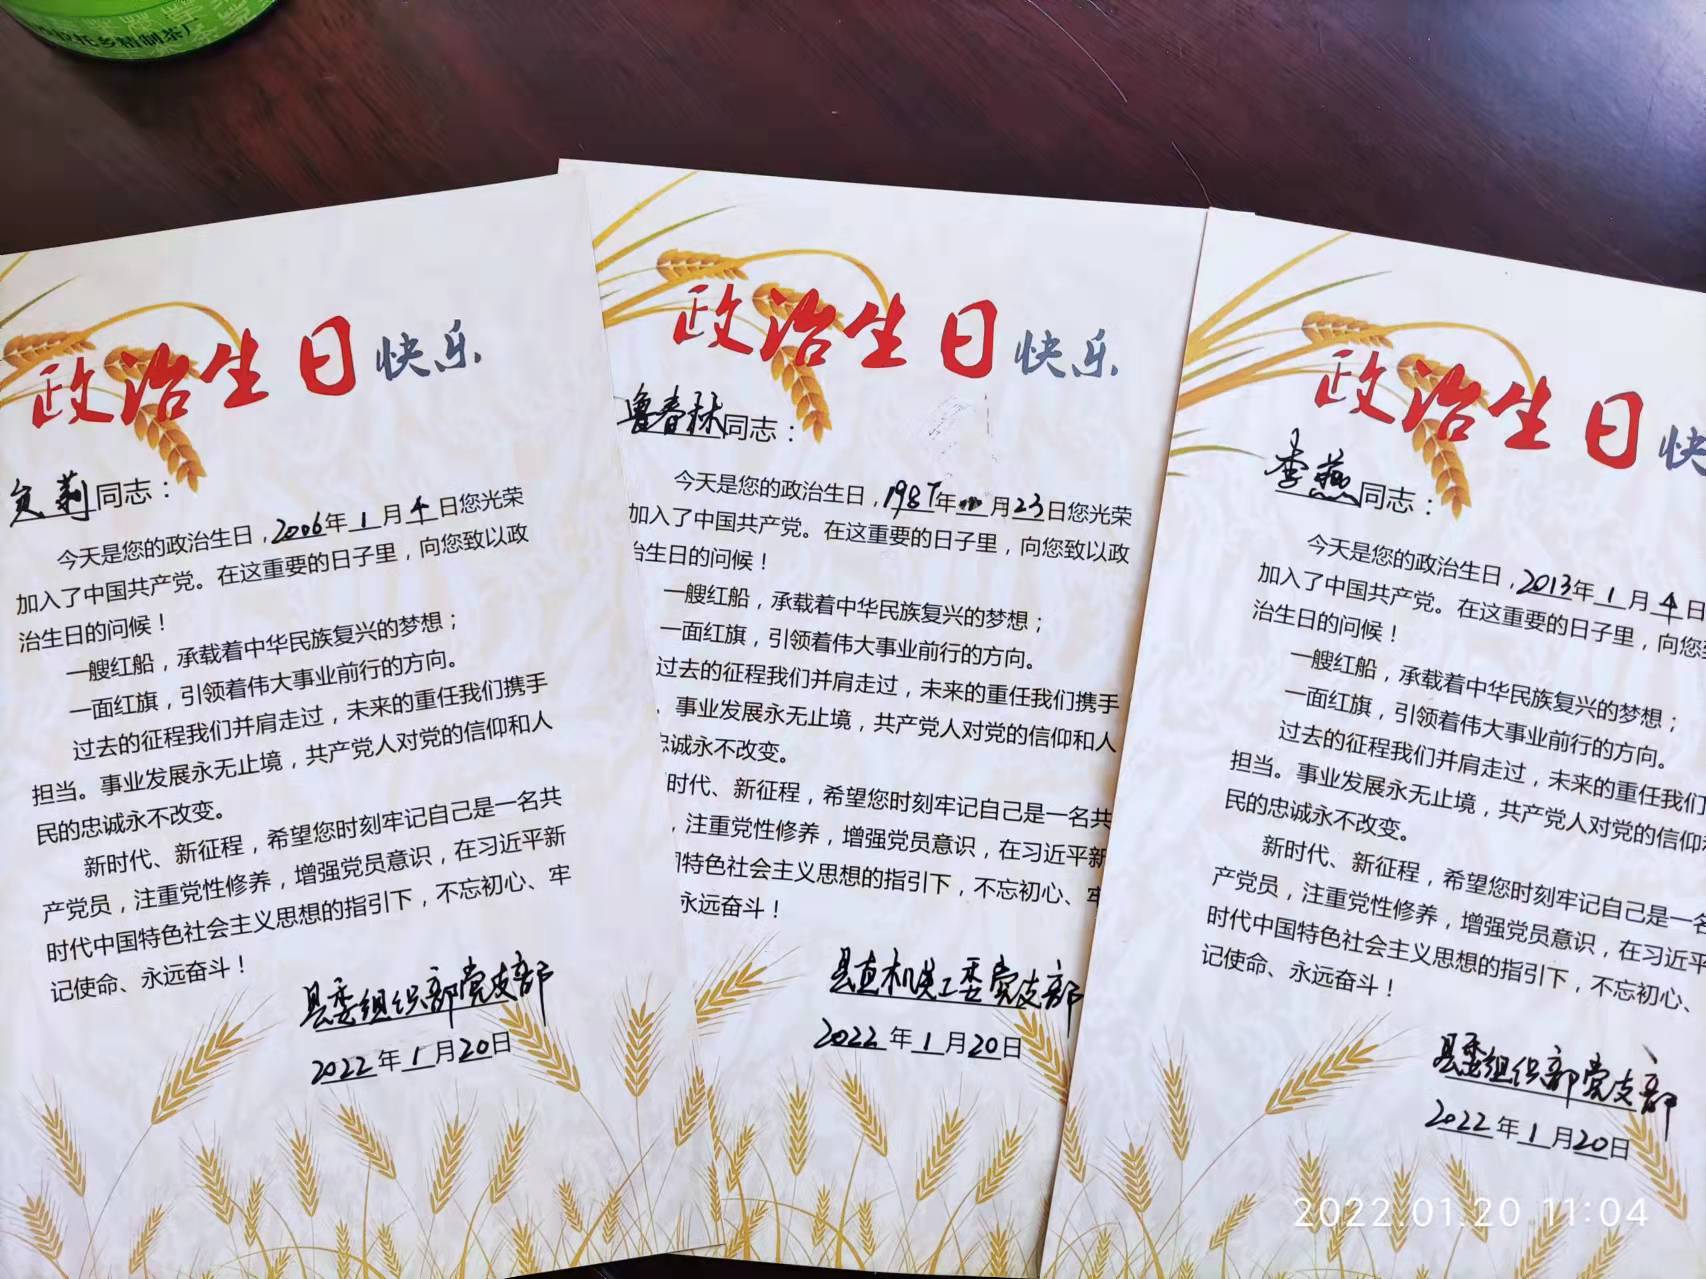 精制茶厂
政治生日快乐
莉同志：
今天是您的政治生日，2006年1月4日您光荣
加入了中国共产党。在这重要的日子里，向您致以政
治生日的问候！
一艘红船，承载着中华民族复兴的梦想；
一面红旗，引领着伟大事业前行的方向。
过去的征程我们并肩走过，未来的重任我们携手
担当。事业发展永无止境，共产党人对党的信仰和人
民的忠诚永不改变。
新时代、新征程，希望您时刻牢记自己是一名共
产党员，注重党性修养，增强党员意识，在习近平新
时代中国特色社会主义思想的指引下，不忘初心、牢
记使命、永远奋斗！
县委组织部党支部
2022年1月20日
政治生日快乐
鲁春林同志：
今天是您的政治生日，1987年月23日您光荣
加入了中国共产党。在这重要的日子里，向您致以政
治生日的问候！
一艘红船，承载着中华民族复兴的梦想；
一面红旗，引领着伟大事业前行的方向。
过去的征程我们并肩走过，未来的重任我们携手
。事业发展永无止境，共产党人对党的信仰和人
忠诚永不改变。
时代、新征程，希望您时刻牢记自己是一名共
，注重党性修养，增强党员意识，在习近平新
国特色社会主义思想的指引下，不忘初心、牢
永远奋斗！
县直机关工委党支部
2022年1月20日
政治生日快
李燕同志：
今天是您的政治生日，2013年1月4日
加入了中国共产党。在这重要的日子里，向您致
治生日的问候！
一艘红船，承载着中华民族复兴的梦想；
一面红旗，引领着伟大事业前行的方向。
过去的征程我们并肩走过，未来的重任我们
担当。事业发展永无止境，共产党人对党的信仰和
民的忠诚永不改变。
新时代、新征程，希望您时刻牢记自己是一名
产党员，注重党性修养，增强党员意识，在习近平
时代中国特色社会主义思想的指引下，不忘初心、
记使命、永远奋斗！
县委组织部党支部
2022年1月20日
2022.01.20 11:04